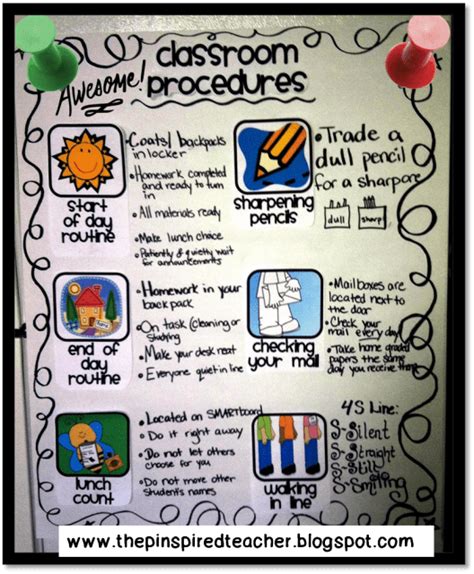 Awesome!
classroom
procedures
start
of day
routine
Coats/ backpacks
in locker
• Homework completed
and ready to turn
in
• All materials ready
• Make lunch choice
• Patiently & quietly wait
for announcements
sharpening
pencils
• Trade a
dull pencil
for a sharpone
dull
sharp
end of
day
routine
• Homework in your
back pack
• On task (cleaning or
studying
• Make your desk neat
• Everyone quiet in line
checking
your mail
• Mailboxes are
located next to
the door
• Check your
mail every day
• Take home graded
papers the same
day you receive them
lunch
count
• Located on SMARTboard
• Do it right away
• Do not let others
choose for you
• Do not move other
student's names
walking
in line
4S Line:
S-Silent
S-Straight
S-Still
S-Smiling
www.thepinspiredteacher.blogspot.com